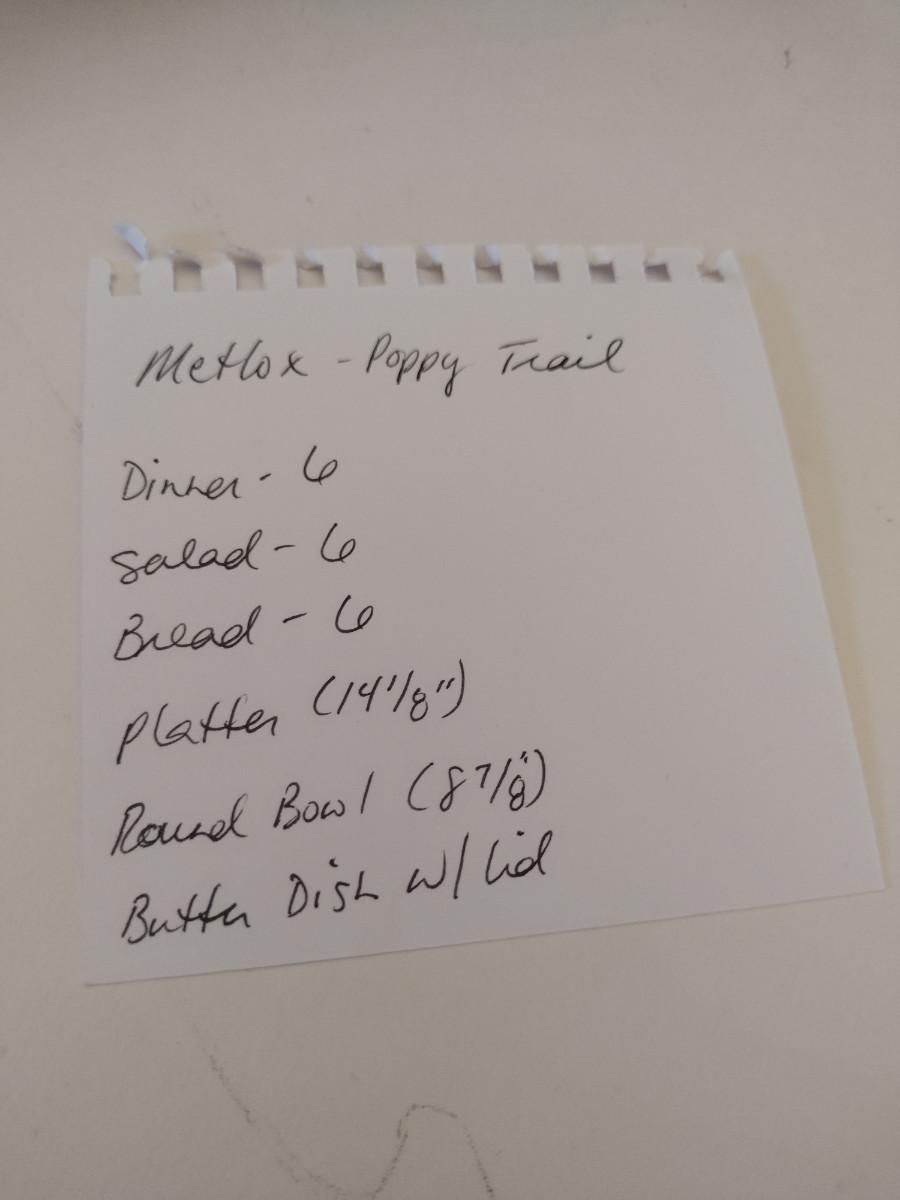 Metlox - Poppy Trail
Dinner - 6
Salad - 6
Bread - 6
Platter (14 1/8")
Round Bowl (8 7/8")
Butter Dish w/ lid